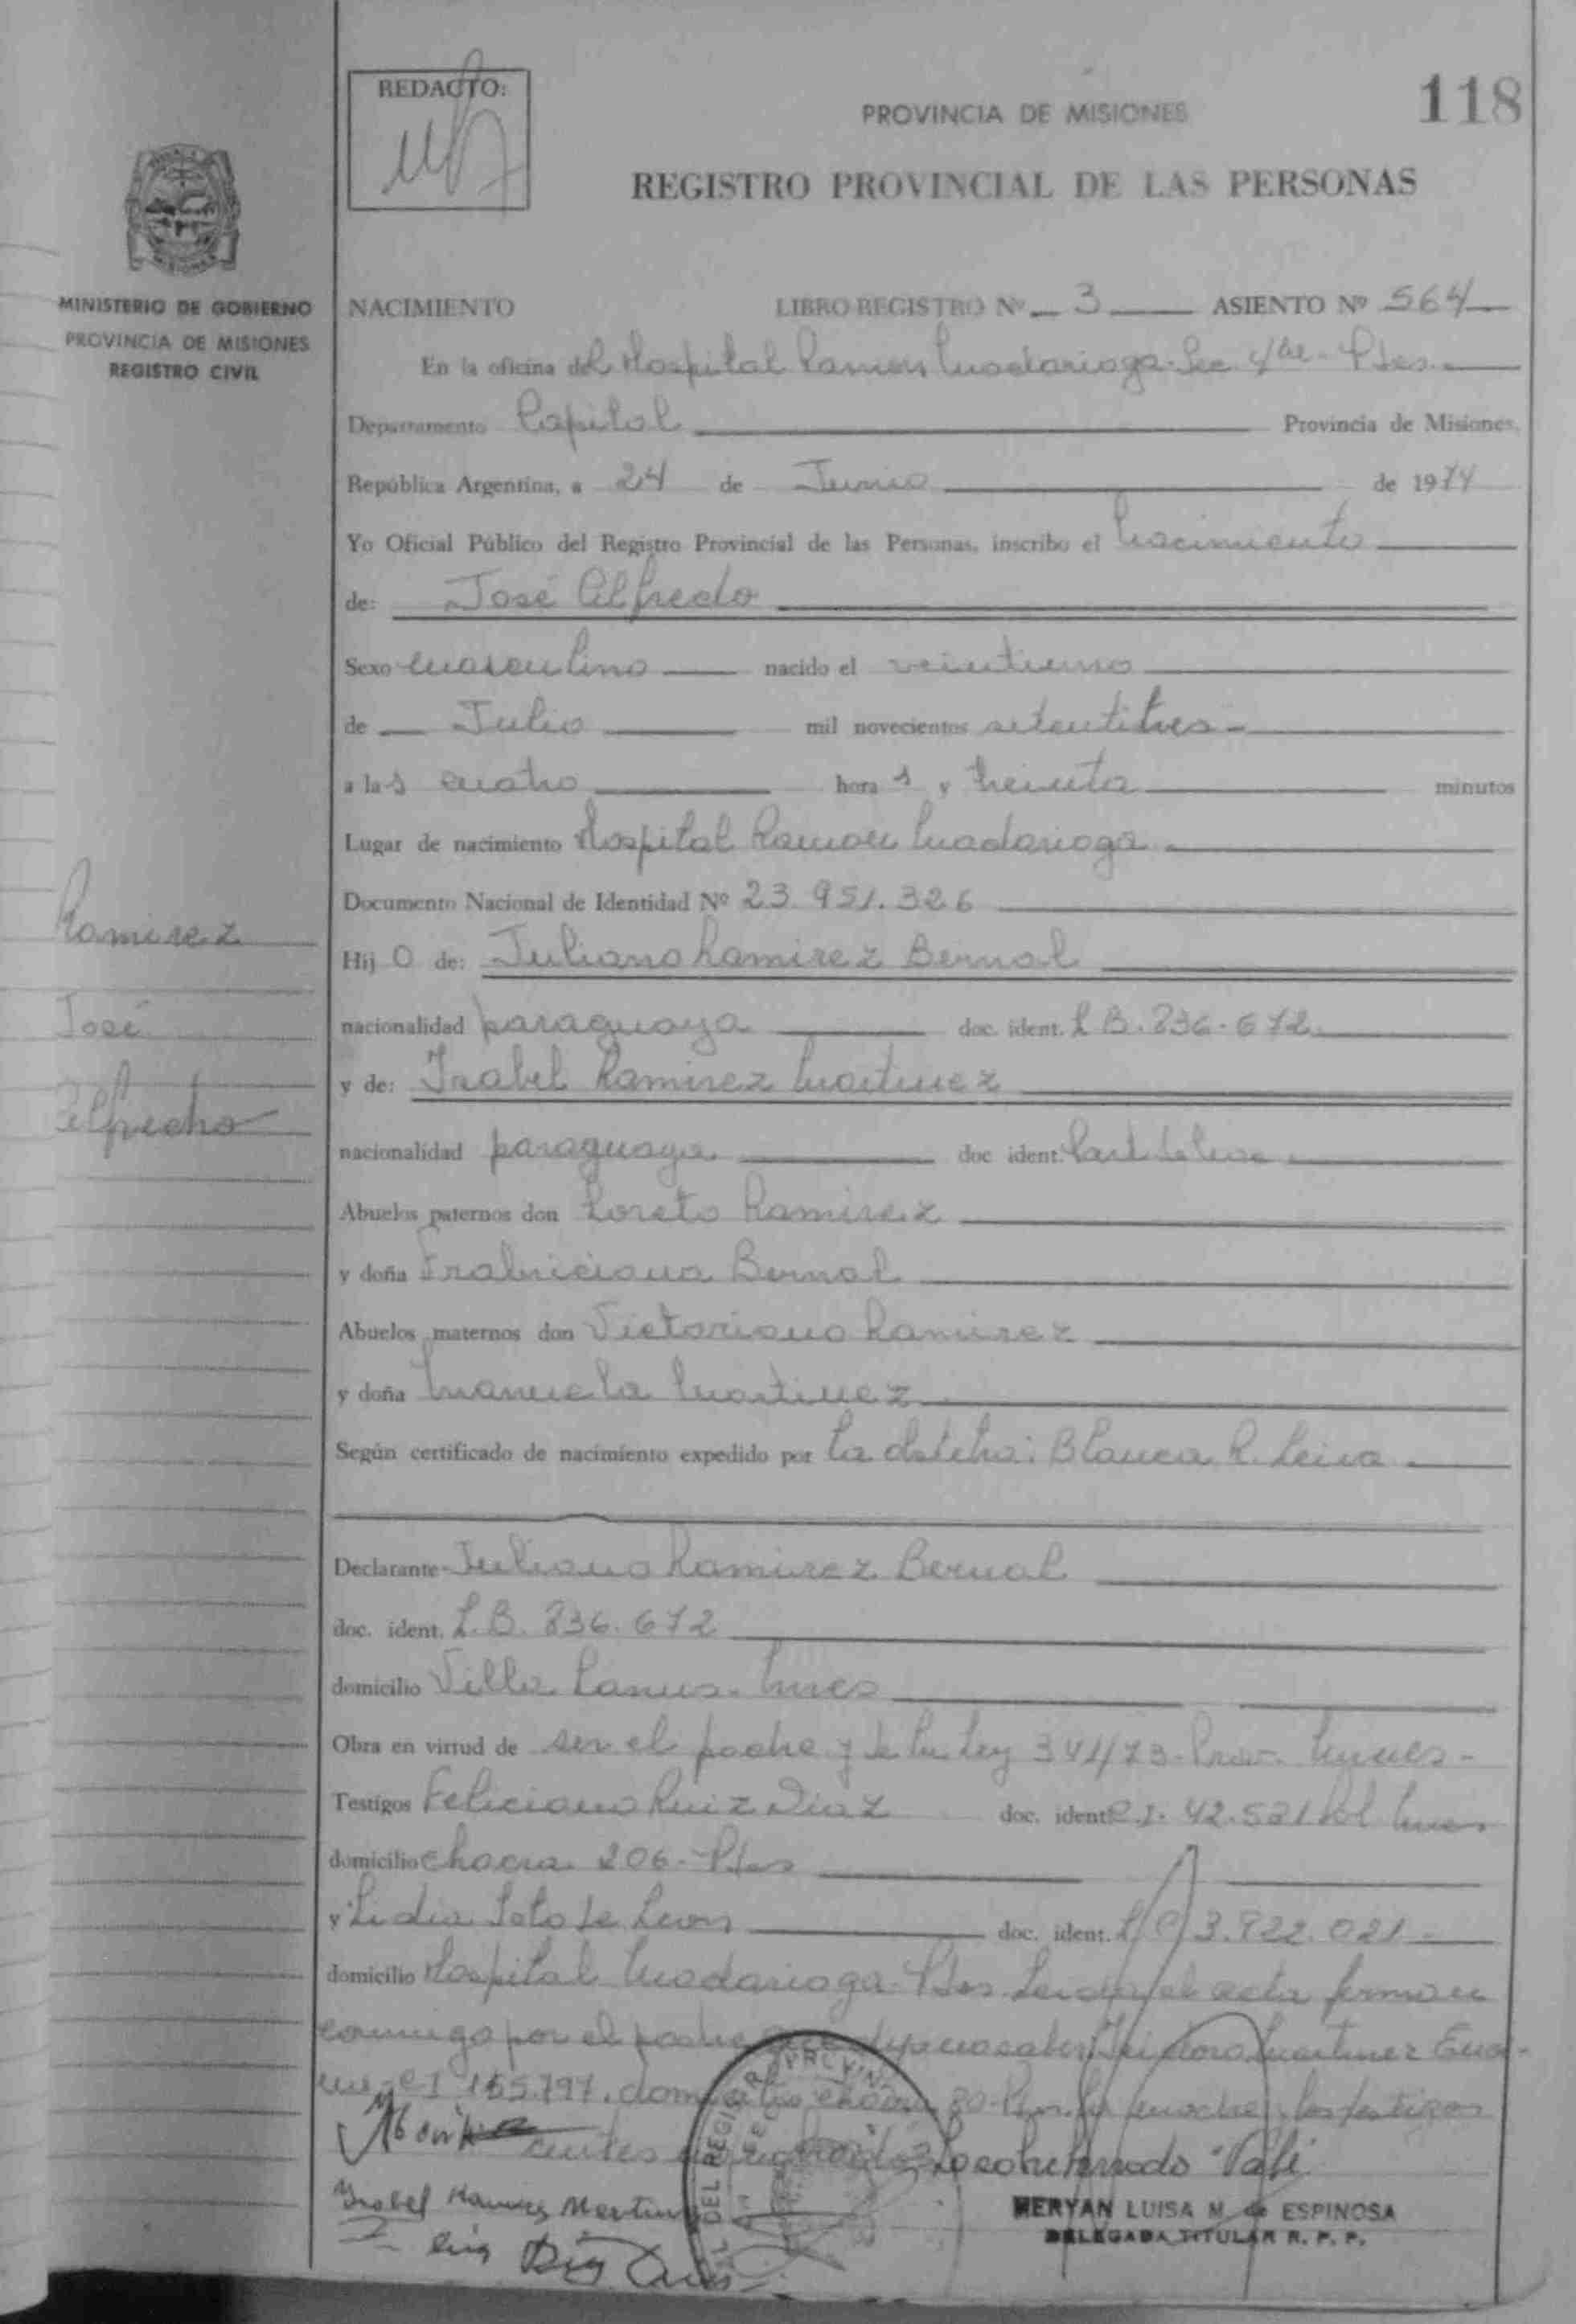 REDACTO:
PROVINCIA DE MISIONES
118
REGISTRO PROVINCIAL DE LAS PERSONAS
MISIONES
MINISTERIO DE GOBIERNO
PROVINCIA DE MISIONES
REGISTRO CIVIL
NACIMIENTO LIBRO REGISTRO Nº 3 ASIENTO Nº 564
En la oficina del Hospital Ramon Madariaga. Sec. 4ta - Pdas.
Departamento Capital Provincia de Misiones,
República Argentina, a 24 de Junio de 1974
Yo Oficial Público del Registro Provincial de las Personas, inscribo el Nacimiento
de: José Alfredo
Sexo masculino nacido el veintiuno
de Julio mil novecientos setentitres-
a las cuatro horas y treinta minutos
Lugar de nacimiento Hospital Ramon Madariaga
Documento Nacional de Identidad Nº 23.951.326
Ramirez
José
Alfredo
Hijo de: Juliano Ramirez Bernal
nacionalidad paraguaya doc. ident. L B. 836.672
y de: Isabel Ramirez Martinez
nacionalidad paraguaya doc ident.
Abuelos paternos don Loreto Ramirez
y doña Bernal
Abuelos maternos don Victoriano Ramirez
y doña Manuela Martinez
Según certificado de nacimiento expedido por la obstetra: Blanca R. Leiva
Declarante Juliano Ramirez Bernal
doc. ident. L.B. 836.672
domicilio Villa Lanus. Mnes
Obra en virtud de ser el padre y de la Ley 341/73- Prov. Mnes-
Testigos Feliciano Ruiz Diaz doc. ident C.I. 42.521 Pol Mnes
domicilio chacra 206.- Pdas
y Lidia Soto de Leon doc. ident. L C 3.822.021
domicilio Hospital Madariaga- Pdas. Leida el acta firman
conmigo por el padre que dijo no saber, Isidoro Martinez
C I 155.797. domicilio chacra 80- Pdas. la madre y los testigos
antes Vale
Isabel Ramirez Martinez
DEL REGISTRO PROVIN
MERYAN LUISA M. de ESPINOSA
DELEGADA TITULAR R. P. P.